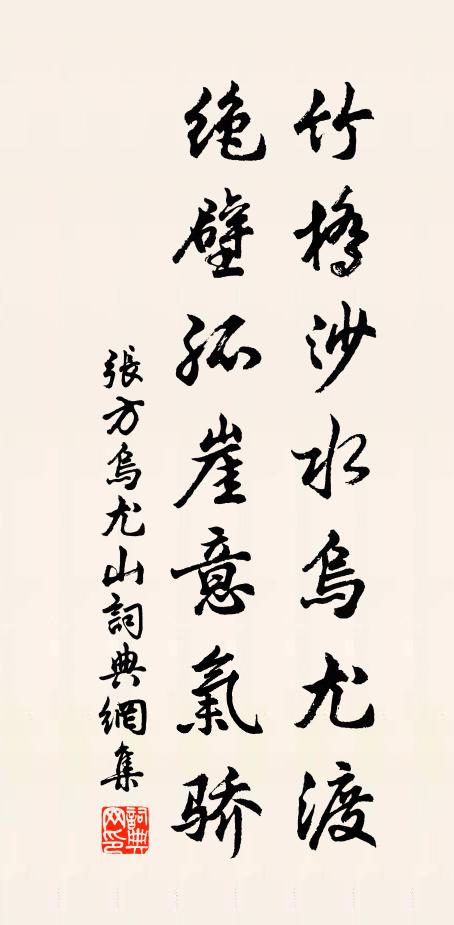 竹橋沙水烏尤渡
绝壁孤崖意氣骄
張方烏尤山詞典網集
詞典网印